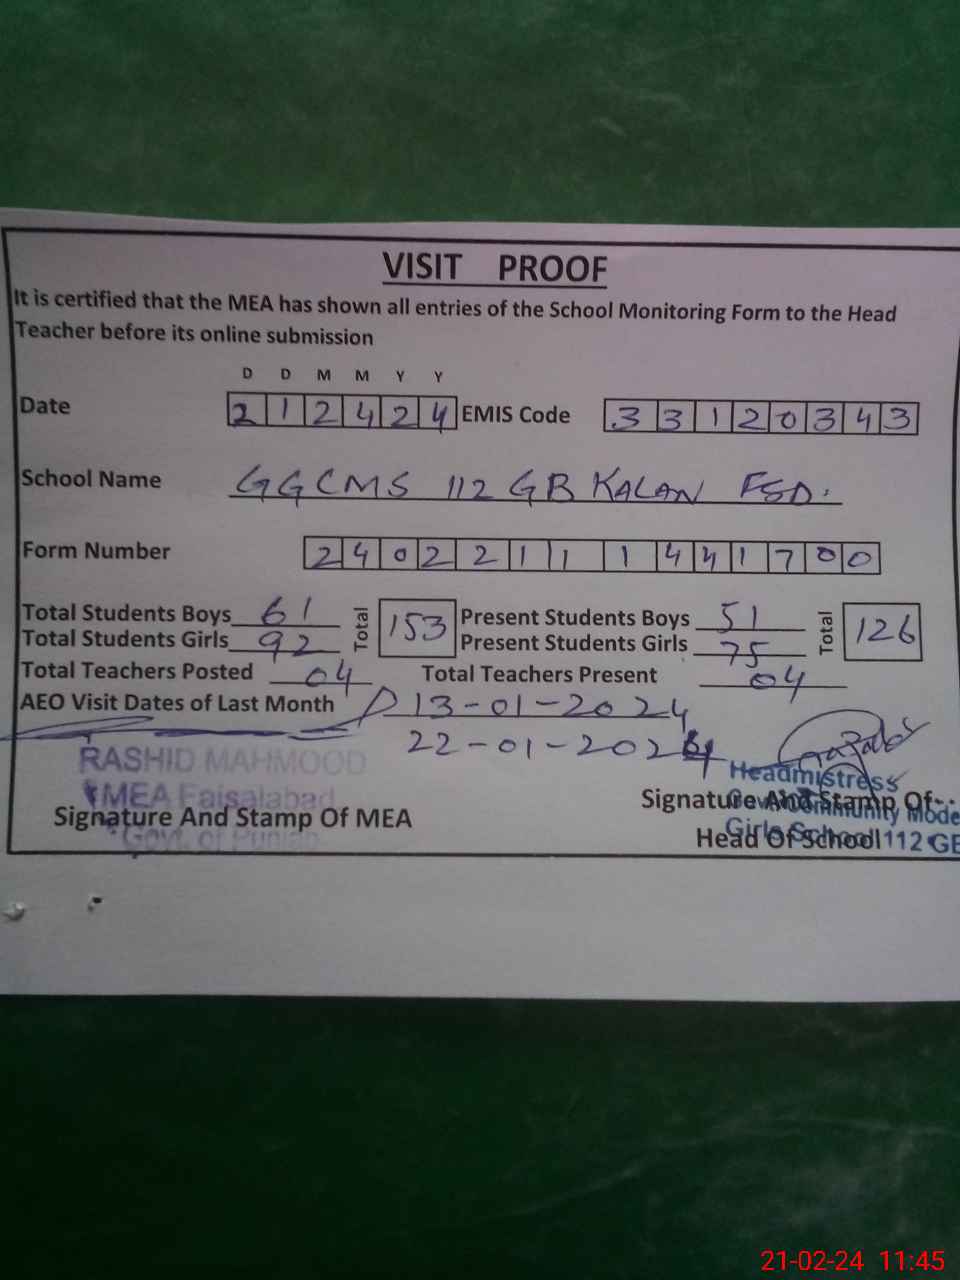 VISIT PROOF
It is certified that the MEA has shown all entries of the School Monitoring Form to the Head
Teacher before its online submission
D D M M Y Y
Date 2 1 2 4 2 4 EMIS Code 3 3 1 2 0 3 4 3
School Name GGCMS 112 GB KALAN FSD.
Form Number 2 4 0 2 2 1 1 1 4 4 1 7 0 0
Total Students Boys 61 Total 153 Present Students Boys 51 Total 126
Total Students Girls 92 Present Students Girls 75
Total Teachers Posted 04 Total Teachers Present 04
AEO Visit Dates of Last Month 13-01-2024
22-01-2024
RASHID MAHMOOD
MEA Faisalabad
Govt. of Punjab
Signature And Stamp Of MEA
Headmistress
Signature And Stamp Of
Govt. Community Mode
Head Of School
Girls School 112 GB
21-02-24 11:45